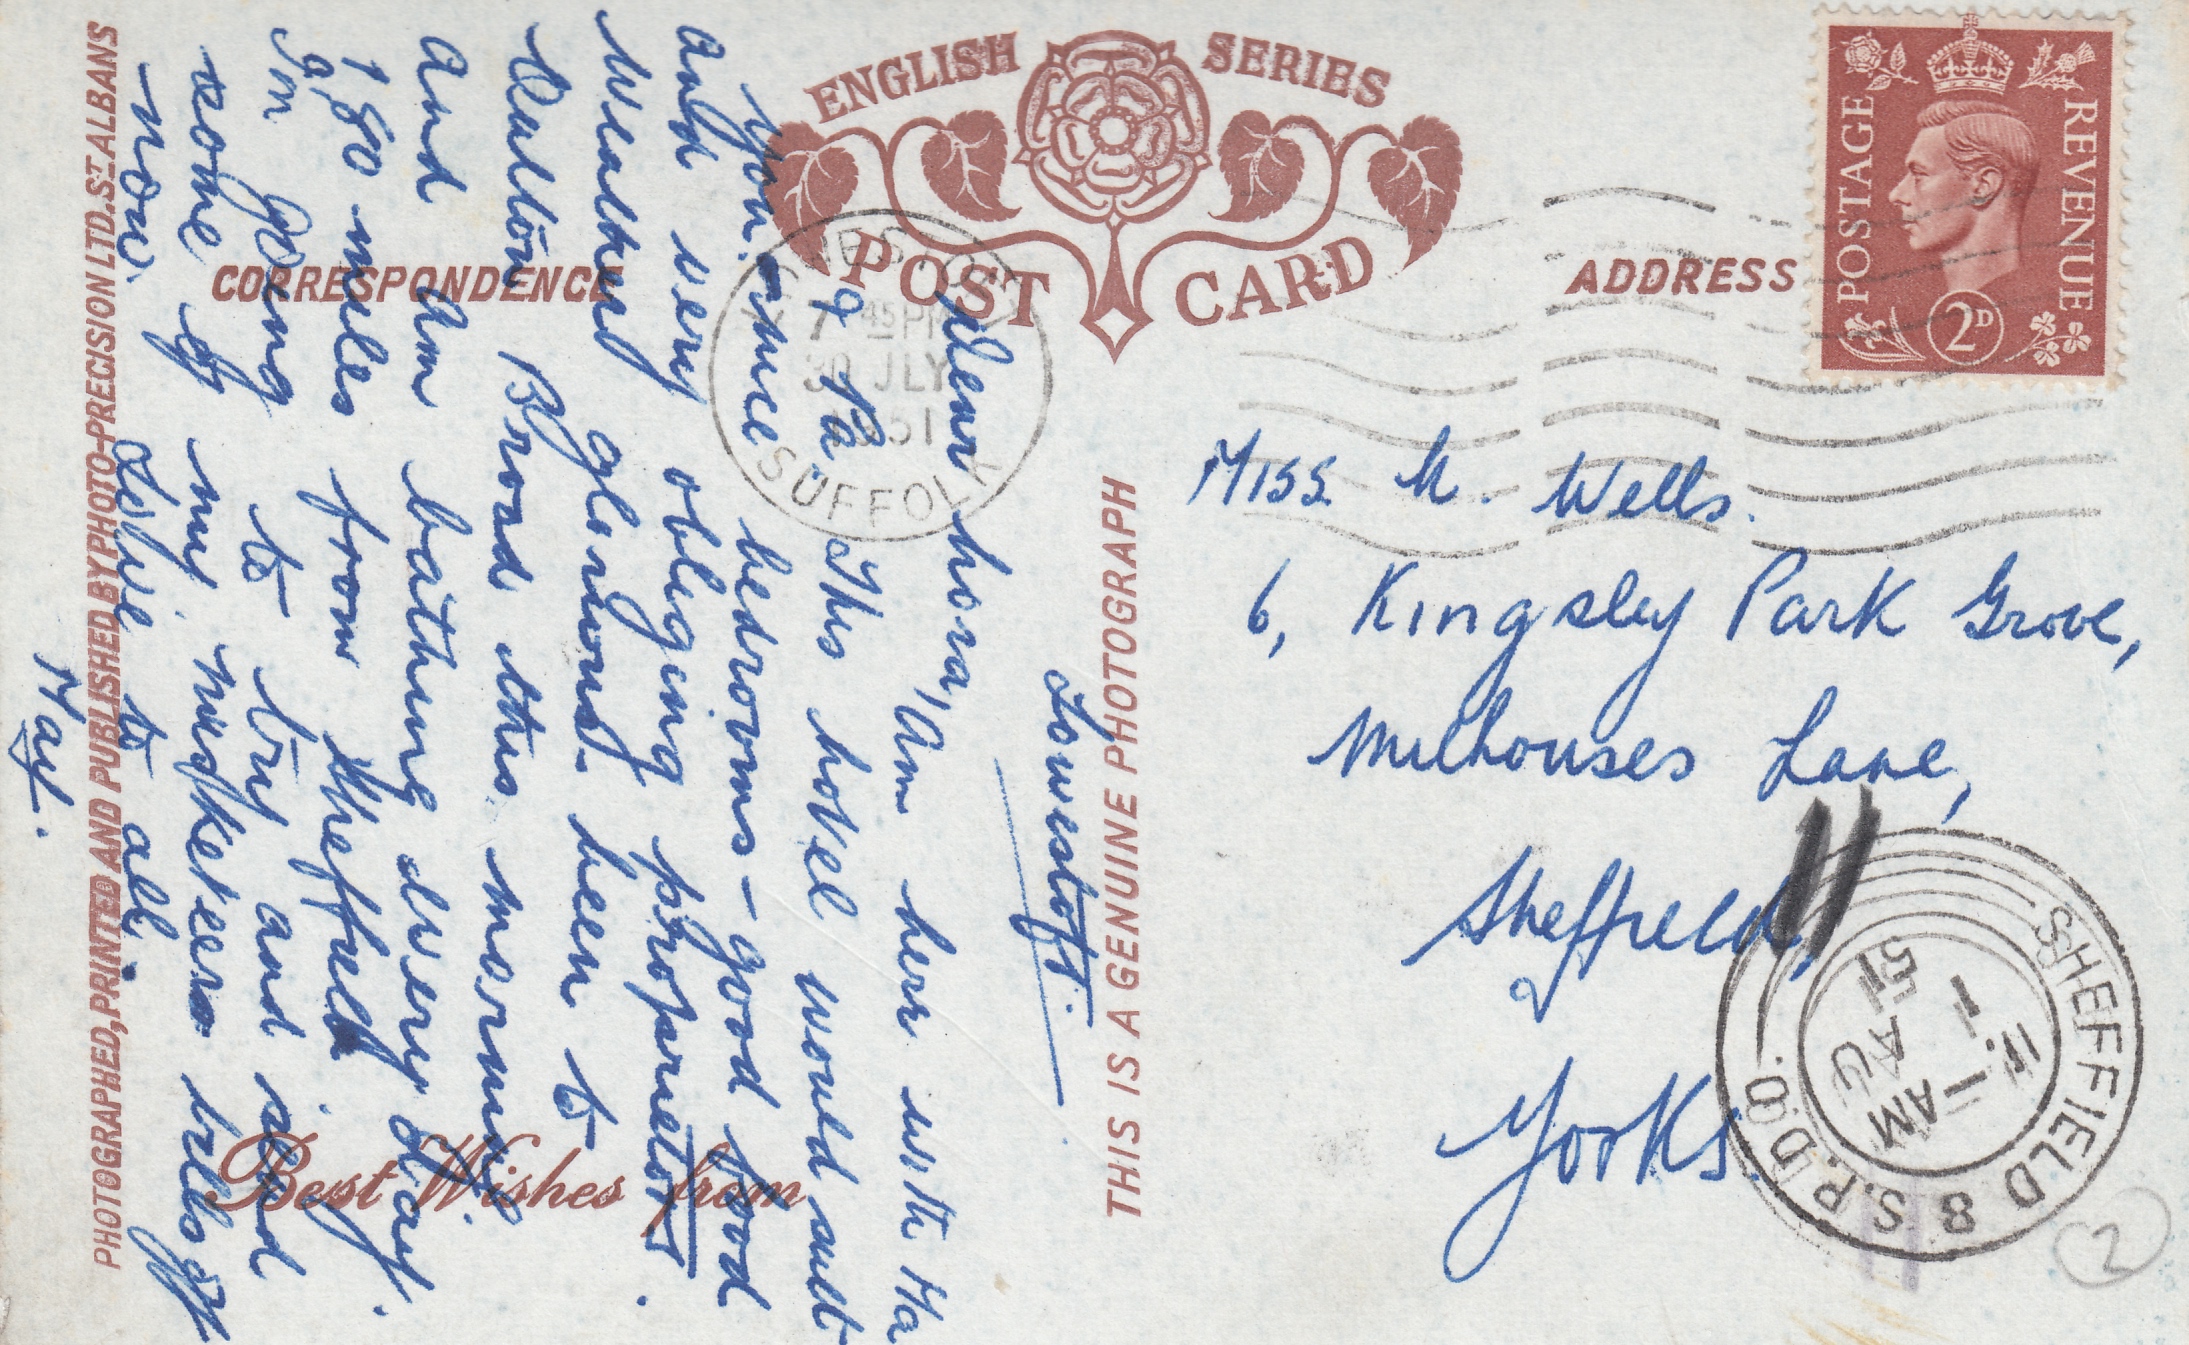 ENGLISH SERIES
POST CARD
CORRESPONDENCE
ADDRESS
POSTAGE
REVENUE
2D
LOWESTOFT
7 45PM
30 JLY
1951
SUFFOLK
Miss. M. Wells.
6, Kingsley Park Grove,
Millhouses Lane,
Sheffield, 11
Yorks.
SHEFFIELD 8 S.P.D.O.
11. 1 AM
1 AU
51
2
THIS IS A GENUINE PHOTOGRAPH
PHOTOGRAPHED, PRINTED AND PUBLISHED BY PHOTO-PRECISION LTD. ST ALBANS
Best Wishes from
Lowestoft.
Dear Nora,
Am here with Ma
& Pa. This hotel would suit
you. nice bedrooms - good food
and very obliging proprietors.
Weather glorious. been to
Oulton Broad this morning
and am bathing every day.
180 miles from Sheffield &
I'm going to try and send
some of my musketeers bills off
now. Love to all.
May.